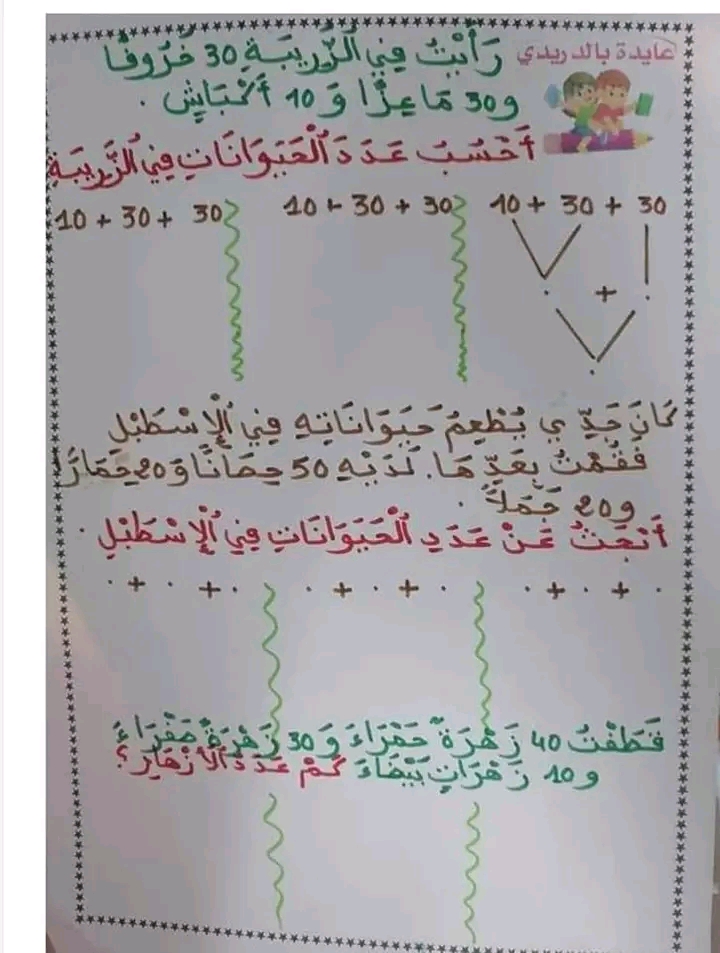 عايدة بالدريدي
رَأَيْتُ فِي الزَّرِيبَةِ 30 خَرُوفًا
و 30 مَاعِزًا وَ 10 أَكْبَاشٍ .
أَحْسُبُ عَدَدَ الْحَيَوَانَاتِ فِي الزَّرِيبَةِ
10 + 30 + 30
10 + 30 + 30
10 + 30 + 30
. + .
.
كَانَ جَدِّي يُطْعِمُ حَيَوَانَاتِهِ فِي الْإِسْطَبْلِ
فَقُمْتُ بِعَدِّهَا. لَدَيْهِ 50 حِصَانًا وَ 20 حِمَارًا
و 20 جَمَلاً .
أَبْحَثُ عَنْ عَدَدِ الْحَيَوَانَاتِ فِي الْإِسْطَبْلِ .
. + . + .
. + . + .
. + . + .
قَطَفْتُ 40 زَهْرَةً حَمْرَاءَ وَ 30 زَهْرَةً صَفْرَاءَ
و 10 زَهْرَاتٍ بَيْضَاءَ كَمْ عَدَدُ الْأَزْهَارِ ؟